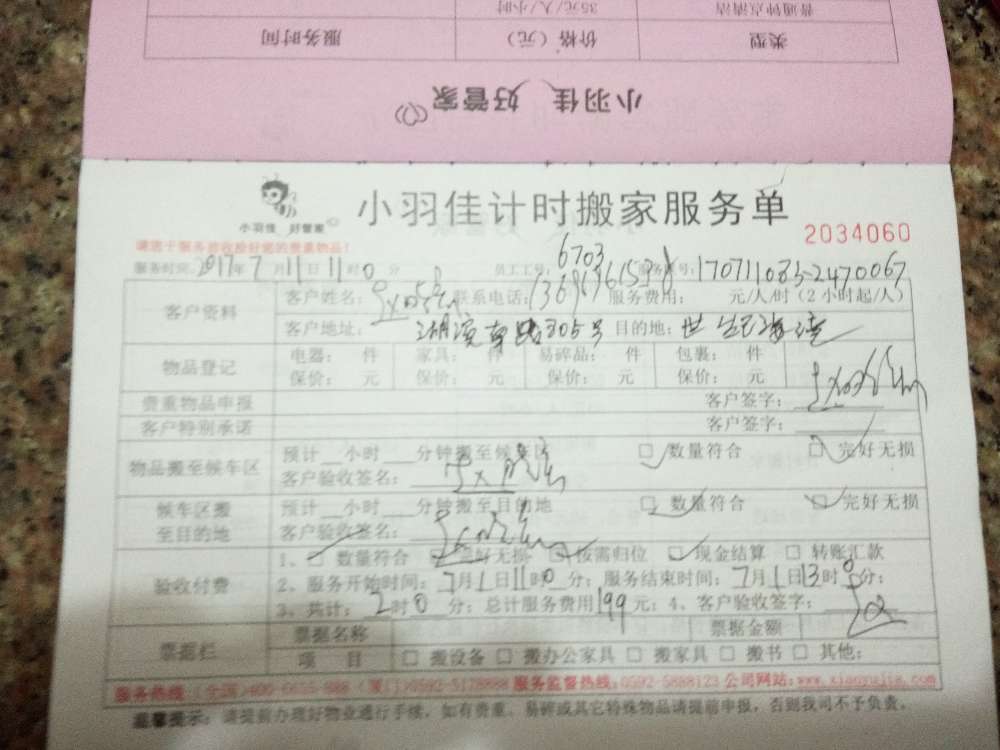 普通钟点清洁 35元/人/小时
类型 价格（元） 服务时间
小羽佳 好管家
小羽佳计时搬家服务单
小羽佳 好管家
2034060
请您于服务前收检好您的贵重物品！
服务时间：2017年7月11日11时0分 员工工号：6703 服务单号：170711085-2470067
客户资料 客户姓名： 联系电话： 服务费用： 元/人/时（2小时起/人）
客户地址： 305号 目的地：
物品登记 电器： 件 家具： 件 易碎品： 件 包裹： 件
保价： 元 保价： 元 保价： 元 保价： 元
贵重物品申报 客户签字：
客户特别承诺 客户签字：
物品搬至候车区 预计__小时__分钟搬至候车区 □ 数量符合 □ 完好无损
客户验收签名：
候车区搬至目的地 预计__小时__分钟搬至目的地 □ 数量符合 □ 完好无损
客户验收签名：
验收付费 1、□ 数量符合 □ 完好无损 □ 按需归位 □ 现金结算 □ 转账汇款
2、服务开始时间：7月1日11时0分；服务结束时间：7月1日13时0分；
3、共计：2时0分；总计服务费用199元；4、客户验收签字：
票据栏 票据名称 票据金额
项 目 □ 搬设备 □ 搬办公家具 □ 搬家具 □ 搬书 □ 其他：
服务热线： 服务监督热线：0592-5888123 公司网站：www.xiaoyujia.com
温馨提示：请提前办理好物业通行手续，如有贵重、易碎或其它特殊物品请提前申报，否则我司不予负责。